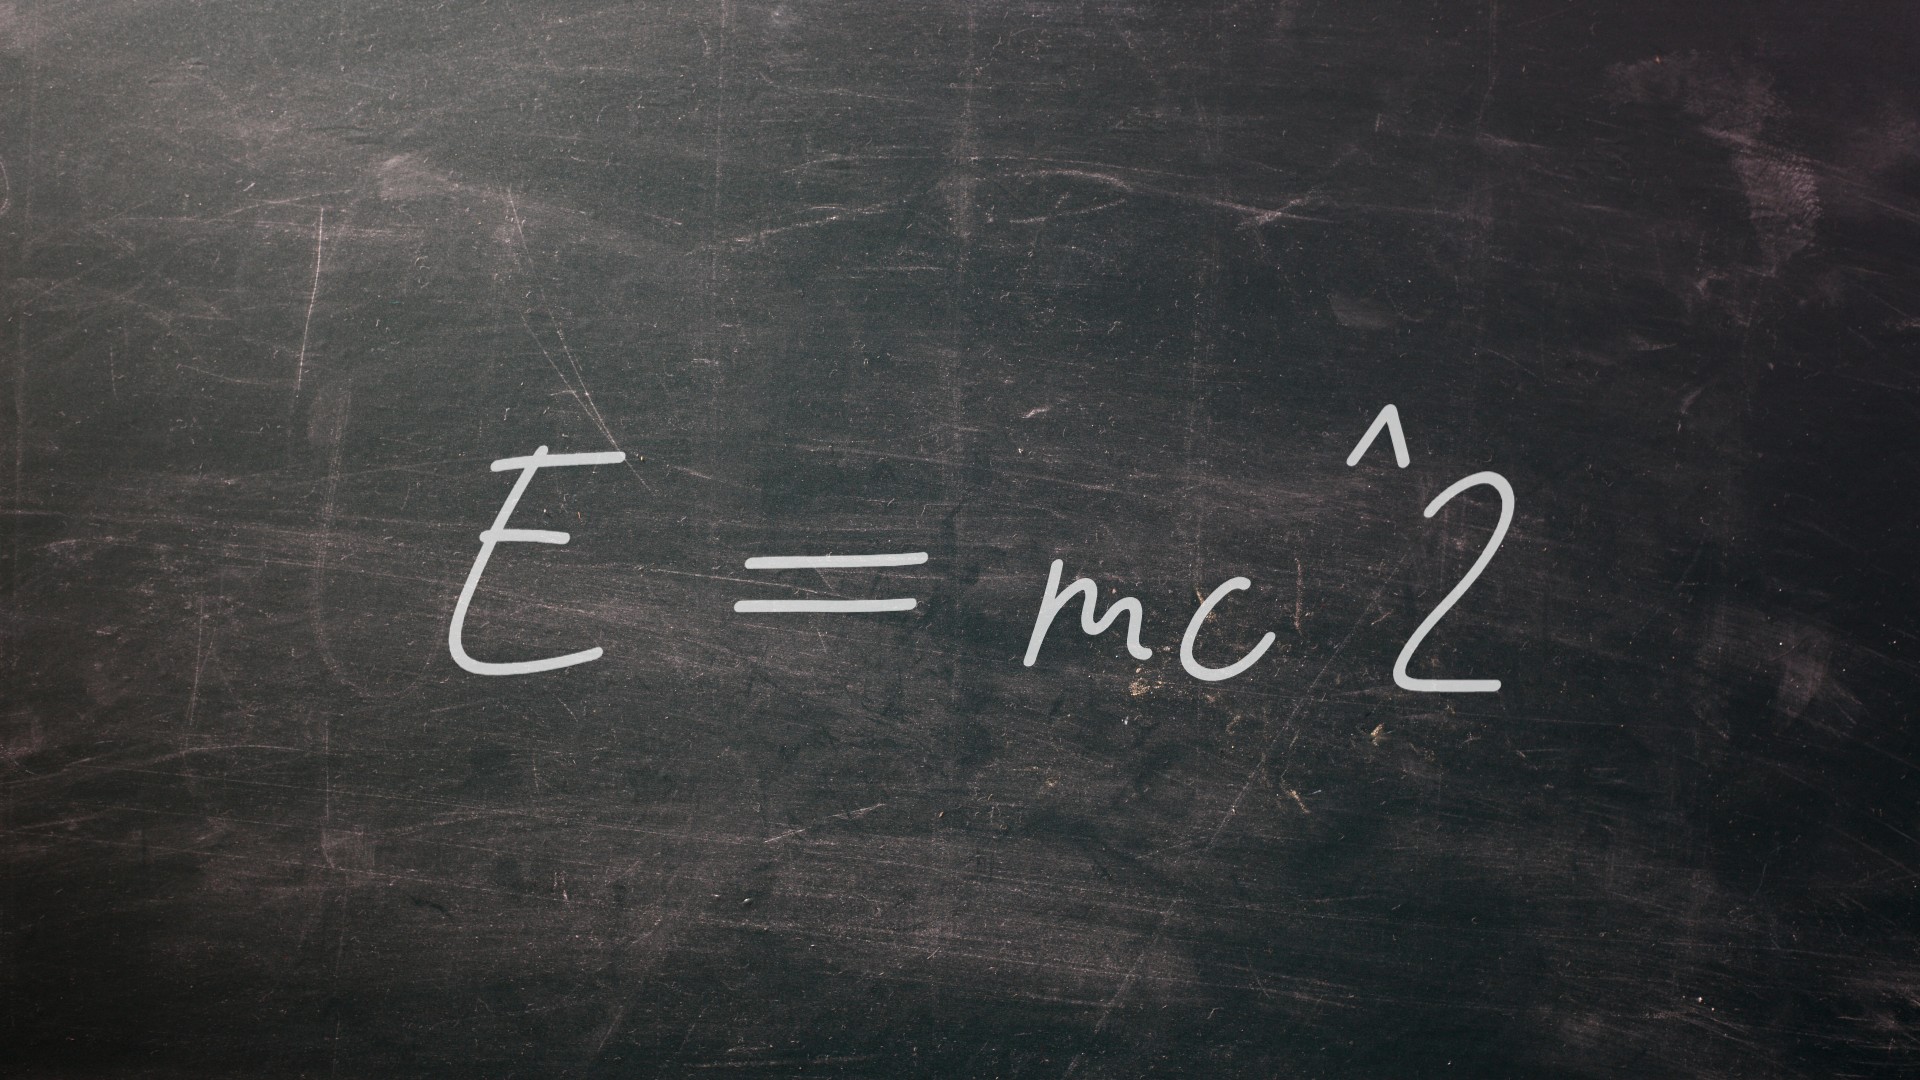 E = mc^2